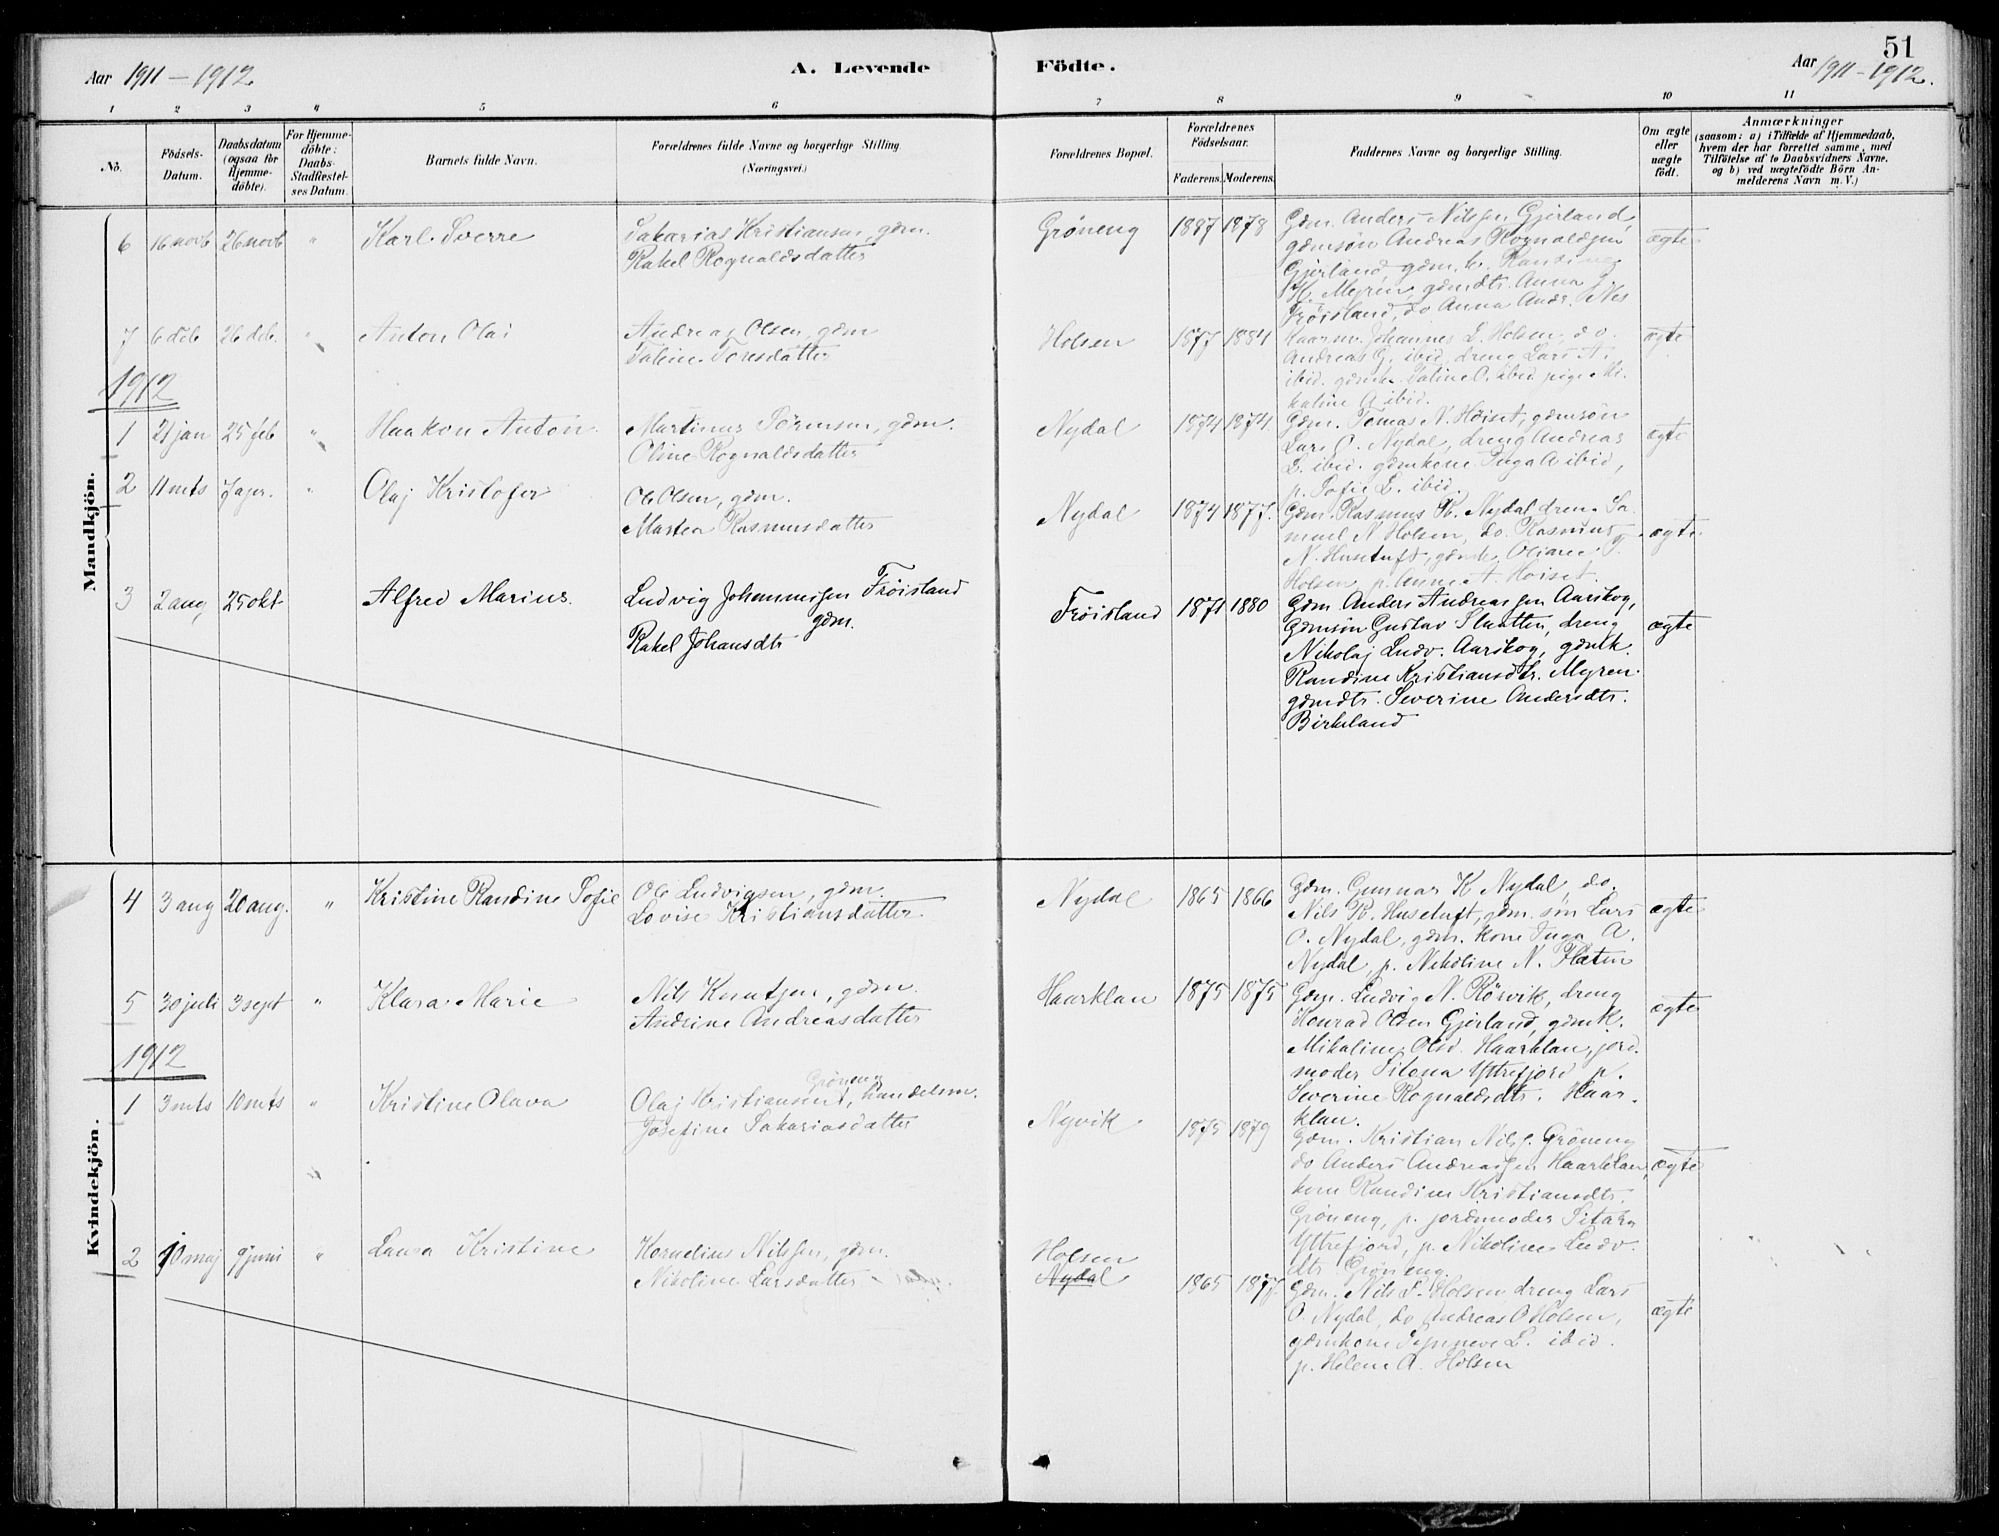 51
Aar 1911 – 1912
A. Levende Födte.
Aar 1911 – 1912.
1 2 3 4 5 6 7 8 9 10 11
No.
Födsels-Datum.
Daabsdatum (ogsaa for Hjemme-döbte).
For Hjemme-döbte: Daabs-Stadfæstel-ses Datum.
Barnets fulde Navn.
Forældrenes fulde Navne og borgerlige Stilling (Næringsvei.)
Forældrenes Bopæl.
Forældrenes Födselsaar.
Faderens. Moderens.
Faddernes Navne og borgerlige Stilling.
Om ægte eller uægte födt.
Anmærkninger
(saasom: a) i Tilfælde af Hjemmedaab, hvem der har forrettet samme, med Tilföielse af to Daabsvidners Navne, og b) ved uægtefödte Börn An-melderens Navn m. V.)
Mandkjön.
6 16 novb 26 novb " Karl Sverre
Sakarias Kristiansen, gdm.
Rakel Rognaldsdatter
Gröneng 1887 1878
Gdm. Anders Nilssen Gjerland,
gdmsøn Andreas Rognaldsen
Gjerland, gdm.k. Randine
K. Myren, gdmdtr. Anna J.
Tröisland, do Anna Andr. Nes
ægte
7 6 deb 26 deb. " Anton Olai
Andreas Olsen, gdm
Taline Toresdatter
Holsen 1877 1884
Kaarm. Johannes L. Holsen, do.
Andreas G. ibid, dreng Lars A.
ibid. gdmk. Taline O. ibid pige Mi-
kaline A ibid.
ægte
1912
1 21 jan 25 feb " Haakon Anton
Martinus Sörensen, gdm.
Oline Rognaldsdatter
Nydal 1874 1874
Gdm. Tomas N. Höiset, gdmsön
Lars O. Nydal, dreng Andreas
L. ibid. gdmkone Inga A ibid,
p. Sofie L. ibid.
ægte
2 11 mts 7 apr. " Olaj Kristofer
Ole Olsen, gdm.
Martea Rasmusdatter
Nydal 1874 1877.
Gdm. Rasmus K. Nydal dren. Sa-
muel N. Holsen, do. Rasmus
N. Husetuft, gdmk. Oliane T.
Holsen, p. Anne A. Höiset.
ægte
3 2 aug 25 okt Alfred Marius.
Ludvig Johannessen Tröisland
gdm.
Rakel Johansdtr
Tröisland 1871 1880
Gdm. Anders Andreassen Aarskog,
Gdmsøn Gustav Slaatten, dreng
Nikolaj Ludv. Aarskog, gdmk.
Randine Kristiansdtr. Myren.
gdmdtr. Severine Andersdtr.
Birkeland
ægte
Kvindekjön.
4 3 aug 20 aug. " Kristine Randine Sofie
Ole Ludvigsen, gdm.
Lovise Kristiansdatter
Nydal 1865 1866
Gdm. Gunnar K Nydal, do.
Nils R. Husetuft, gdm. søn Lars
O. Nydal, gdm. kone Inga A.
Nydal, p. Nikoline N. Flaten
ægte
5 30 juli 3 sept " Klara Marie
Nils Knutsen, gdm.
Andrine Andreasdatter
Haarklau 1875 1875
Gdm. Ludvig N. Rörvik, dreng
Konrad Olsen Gjerland, gdmk.
Mikaline Olsd. Haarklau, jord-
moder Ytrefjord p.
Severine Rognaldsdtr. Haar-
klau.
ægte
1912
1 3 mts 10 mts " Kristine Olava
Gröneng
Olaj Kristiansen, handelsm.
Josefine Sakariasdatter
Nyvik 1875 1879
Gdm. Kristian Nilss. Gröneng
do Anders Andreassen Haarklau,
kone Randine Kristiansdtr.
Gröneng, p. jordmoder
Yttrefjord, p. Nikoline Ludv.
dtr. Gröneng.
ægte
2 10 maj 9 juni " Laura Kristine
Kornelius Nilssen, gdm.
Nikoline Larsdatter
Holsen
Nydal 1865 1877.
Gdm. Nils L. Holsen, dreng Lars
O. Nydal, do Andreas O Holsen,
gdmkone Synneve L. ibid.
p. Helene A. Holsen
ægte